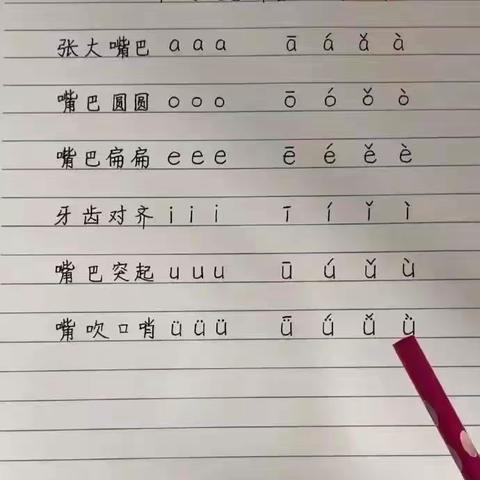 张大嘴巴 a a a ā á ǎ à
嘴巴圆圆 o o o ō ó ǒ ò
嘴巴扁扁 e e e ē é ě è
牙齿对齐 i i i ī í ǐ ì
嘴巴突起 u u u ū ú ǔ ù
嘴吹口哨 ü ü ü ǖ ǘ ǚ ǜ